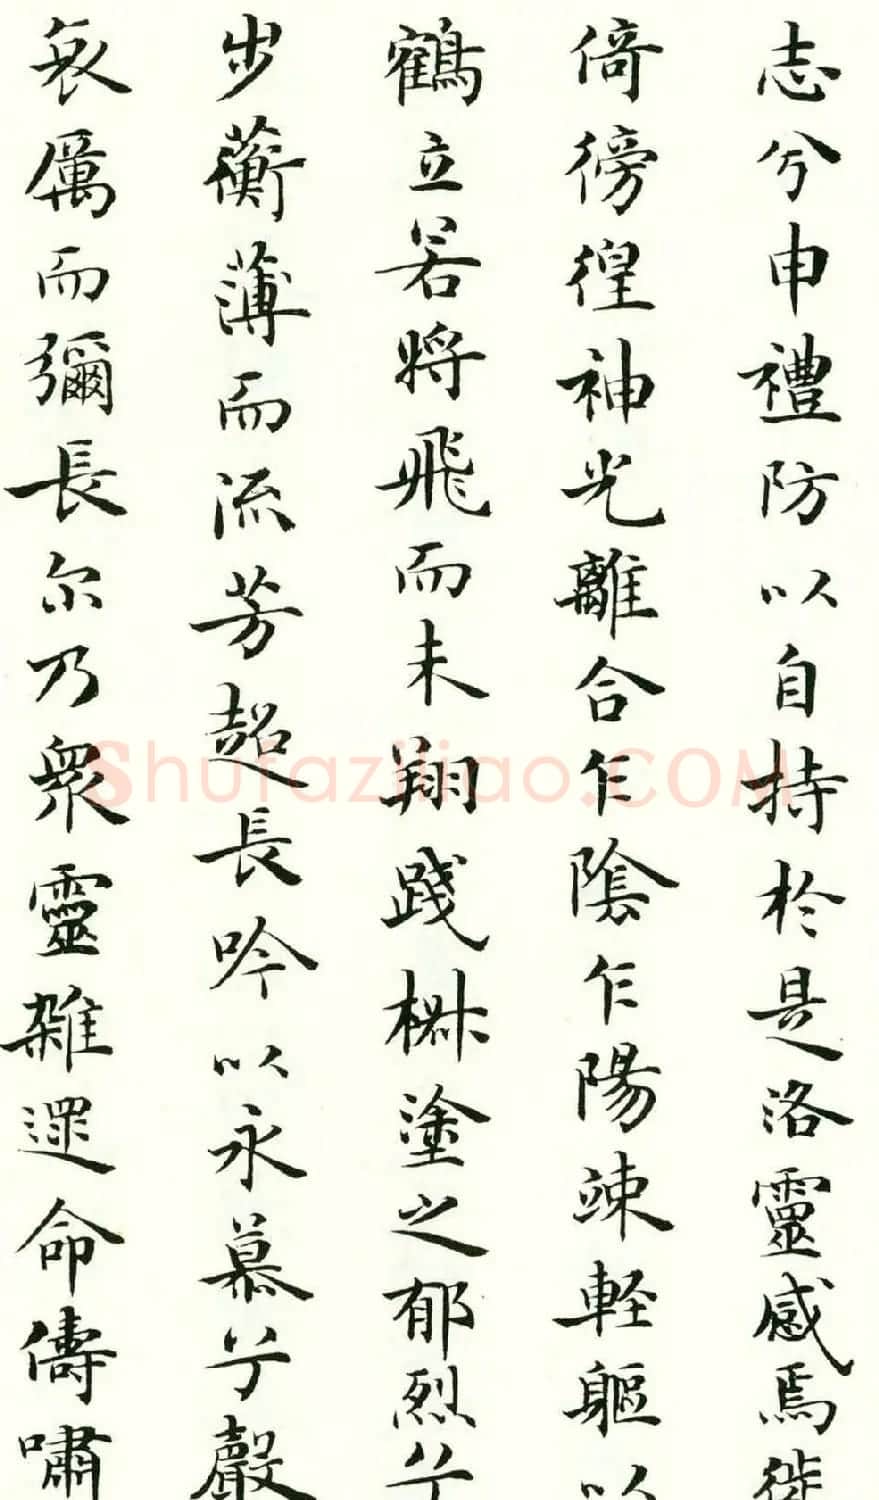 志兮申禮防以自持於是洛靈感焉徙
倚徬徨神光離合乍陰乍陽竦軽軀以
鶴立若將飛而未翔踐椒塗之郁烈兮
步蘅薄而流芳超長吟以永慕兮聲
哀厲而彌長尔乃衆靈雜遝命儔嘯
Shufaziliao.COM